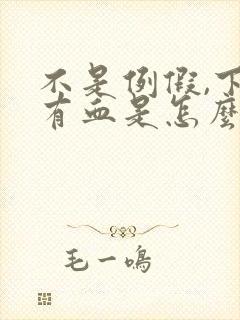 不是例假,下
有血是怎麼
毛一鳴